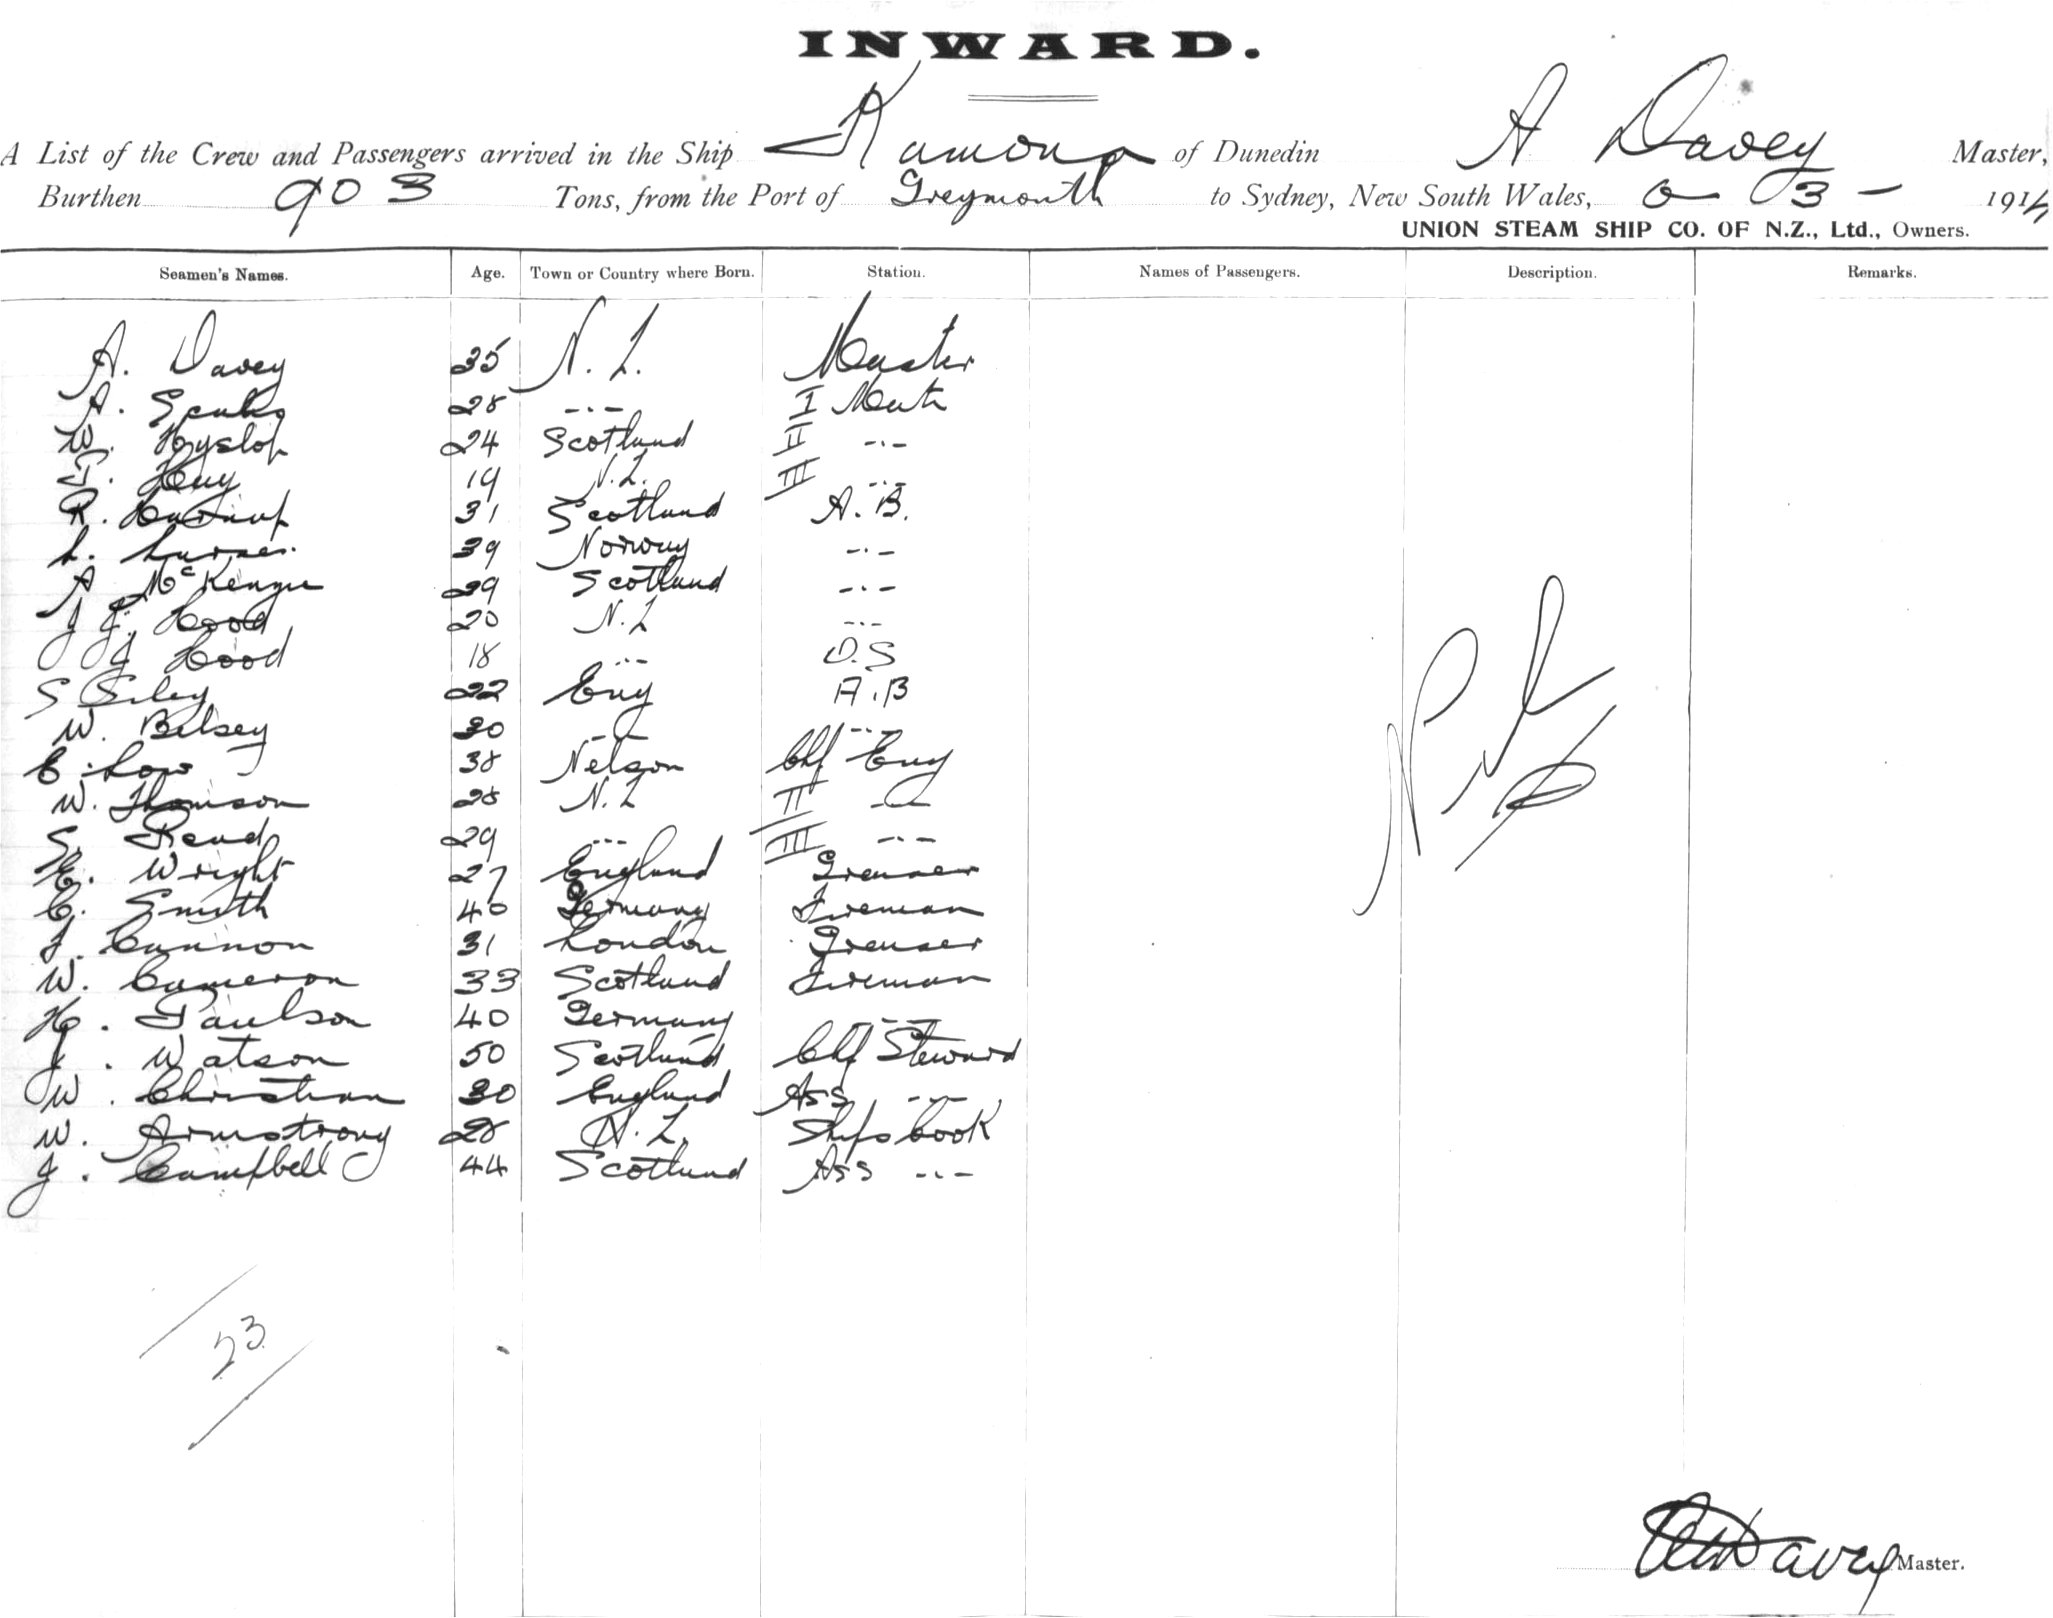 INWARD.
A List of the Crew and Passengers arrived in the Ship Kamona of Dunedin A Davey Master,
Burthen 903 Tons, from the Port of Greymouth to Sydney, New South Wales, 3 - 1914
UNION STEAM SHIP CO. OF N.Z., Ltd., Owners.
Seamen's Names. Age. Town or Country where Born. Station. Names of Passengers. Description. Remarks.
A. Davey 35 N. Z. Master
A. 28 -..- I Mate
W. Hyslop 24 Scotland II -..-
J. Hay 19 N.Z. III -..-
R. 31 Scotland A. B.
L. 39 Norway -..-
A McKenzie 29 Scotland -..-
J J. Hood 20 N.Z -..-
J J Hood 18 -..- O.S
S 22 Eng A.B
W. Belsey 30 -..- -..-
E. Low 38 Nelson Chf Eng
W. Thomson 28 N.Z II -..-
S. Read 29 -..- III -..-
E. Wright 27 England Greaser
C. Smith 40 Germany Fireman
J. Cannon 31 London Greaser
W. Cameron 33 Scotland Fireman
H. Paulson 40 Germany -..-
J. Watson 50 Scotland Chf Steward
W. Christian 30 England Ass -..-
W. Armstrong 28 N.Z. Ships Cook
J. Campbell 44 Scotland Ass -..-
Nil
23
Davey Master.